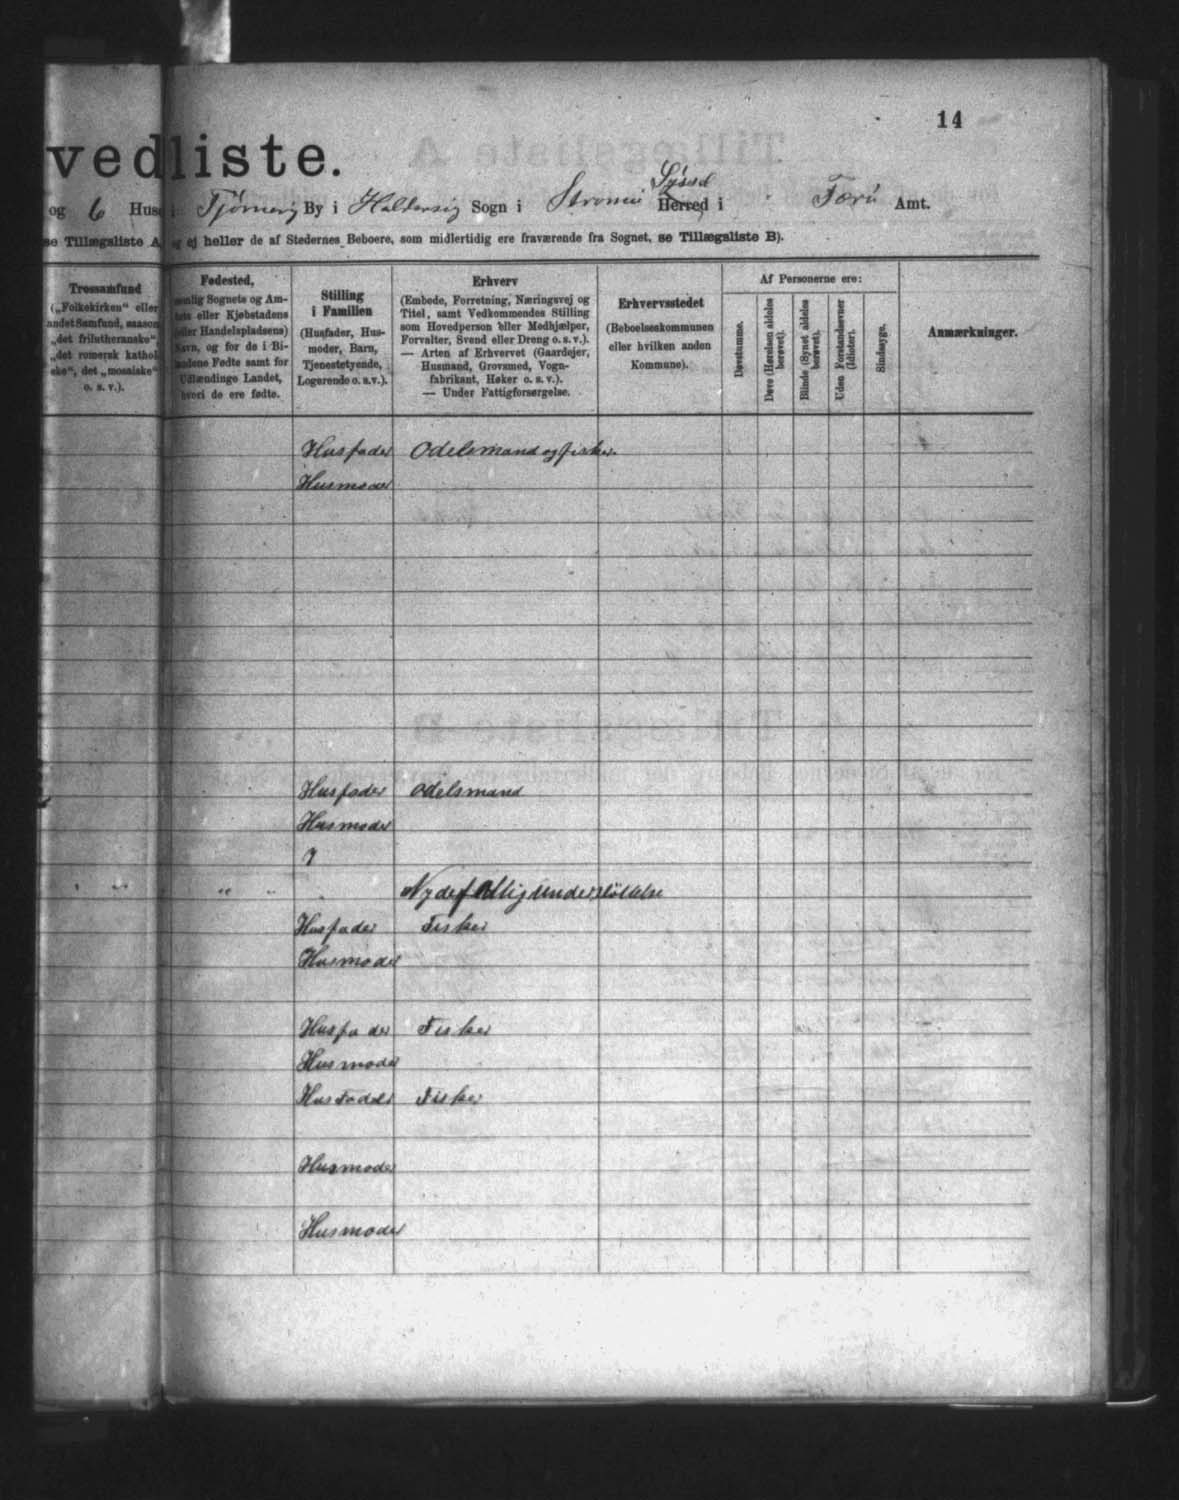 14
vedliste.
og 6 Huse i Tjørnevig By i Haldersvig Sogn i Strømø Syssel Herred i Færø Amt.
se Tillægsliste A, og ej heller de af Stedernes Beboere, som midlertidig ere fraværende fra Sognet, se Tillægsliste B).
Trossamfund
(„Folkekirken“ eller
andet Samfund, saasom
„det frilutheranske“,
„det romersk kathol
ske“, det „mosaiske“
o. s. v.).
Fødested,
nemlig Sognets og Am-
tets eller Kjøbstadens
(eller Handelspladsens)
Navn, og for de i Bi-
landene Fødte samt for
Udlændinge Landet,
hvori de ere fødte.
Stilling
i Familien
(Husfader, Hus-
moder, Barn,
Tjenestetyende,
Logerende o. s. v.).
Erhverv
(Embede, Forretning, Næringsvej og
Titel, samt Vedkommendes Stilling
som Hovedperson eller Medhjælper,
Forvalter, Svend eller Dreng o. s. v.).
— Arten af Erhvervet (Gaardejer,
Husmand, Grovsmed, Vogn-
fabrikant, Høker o. s. v.).
— Under Fattigforsørgelse.
Erhvervsstedet
(Beboelseskommunen
eller hvilken anden
Kommune).
Af Personerne ere:
Døvstumme.
Døve (Hørelsen aldeles
berøvet).
Blinde (Synet aldeles
berøvet).
Uden Forstandsevner
(Idioter).
Sindssyge.
Anmærkninger.
Husfader Odelsmand og fisker.
Husmoder
Husfader Odelsmand
Husmoder
" " " " Nyder fattigunderstøttelse
Husfader Fisker
Husmoder
Husfader Fisker
Husmoder
Husfader Fisker
Husmoder
Husmoder